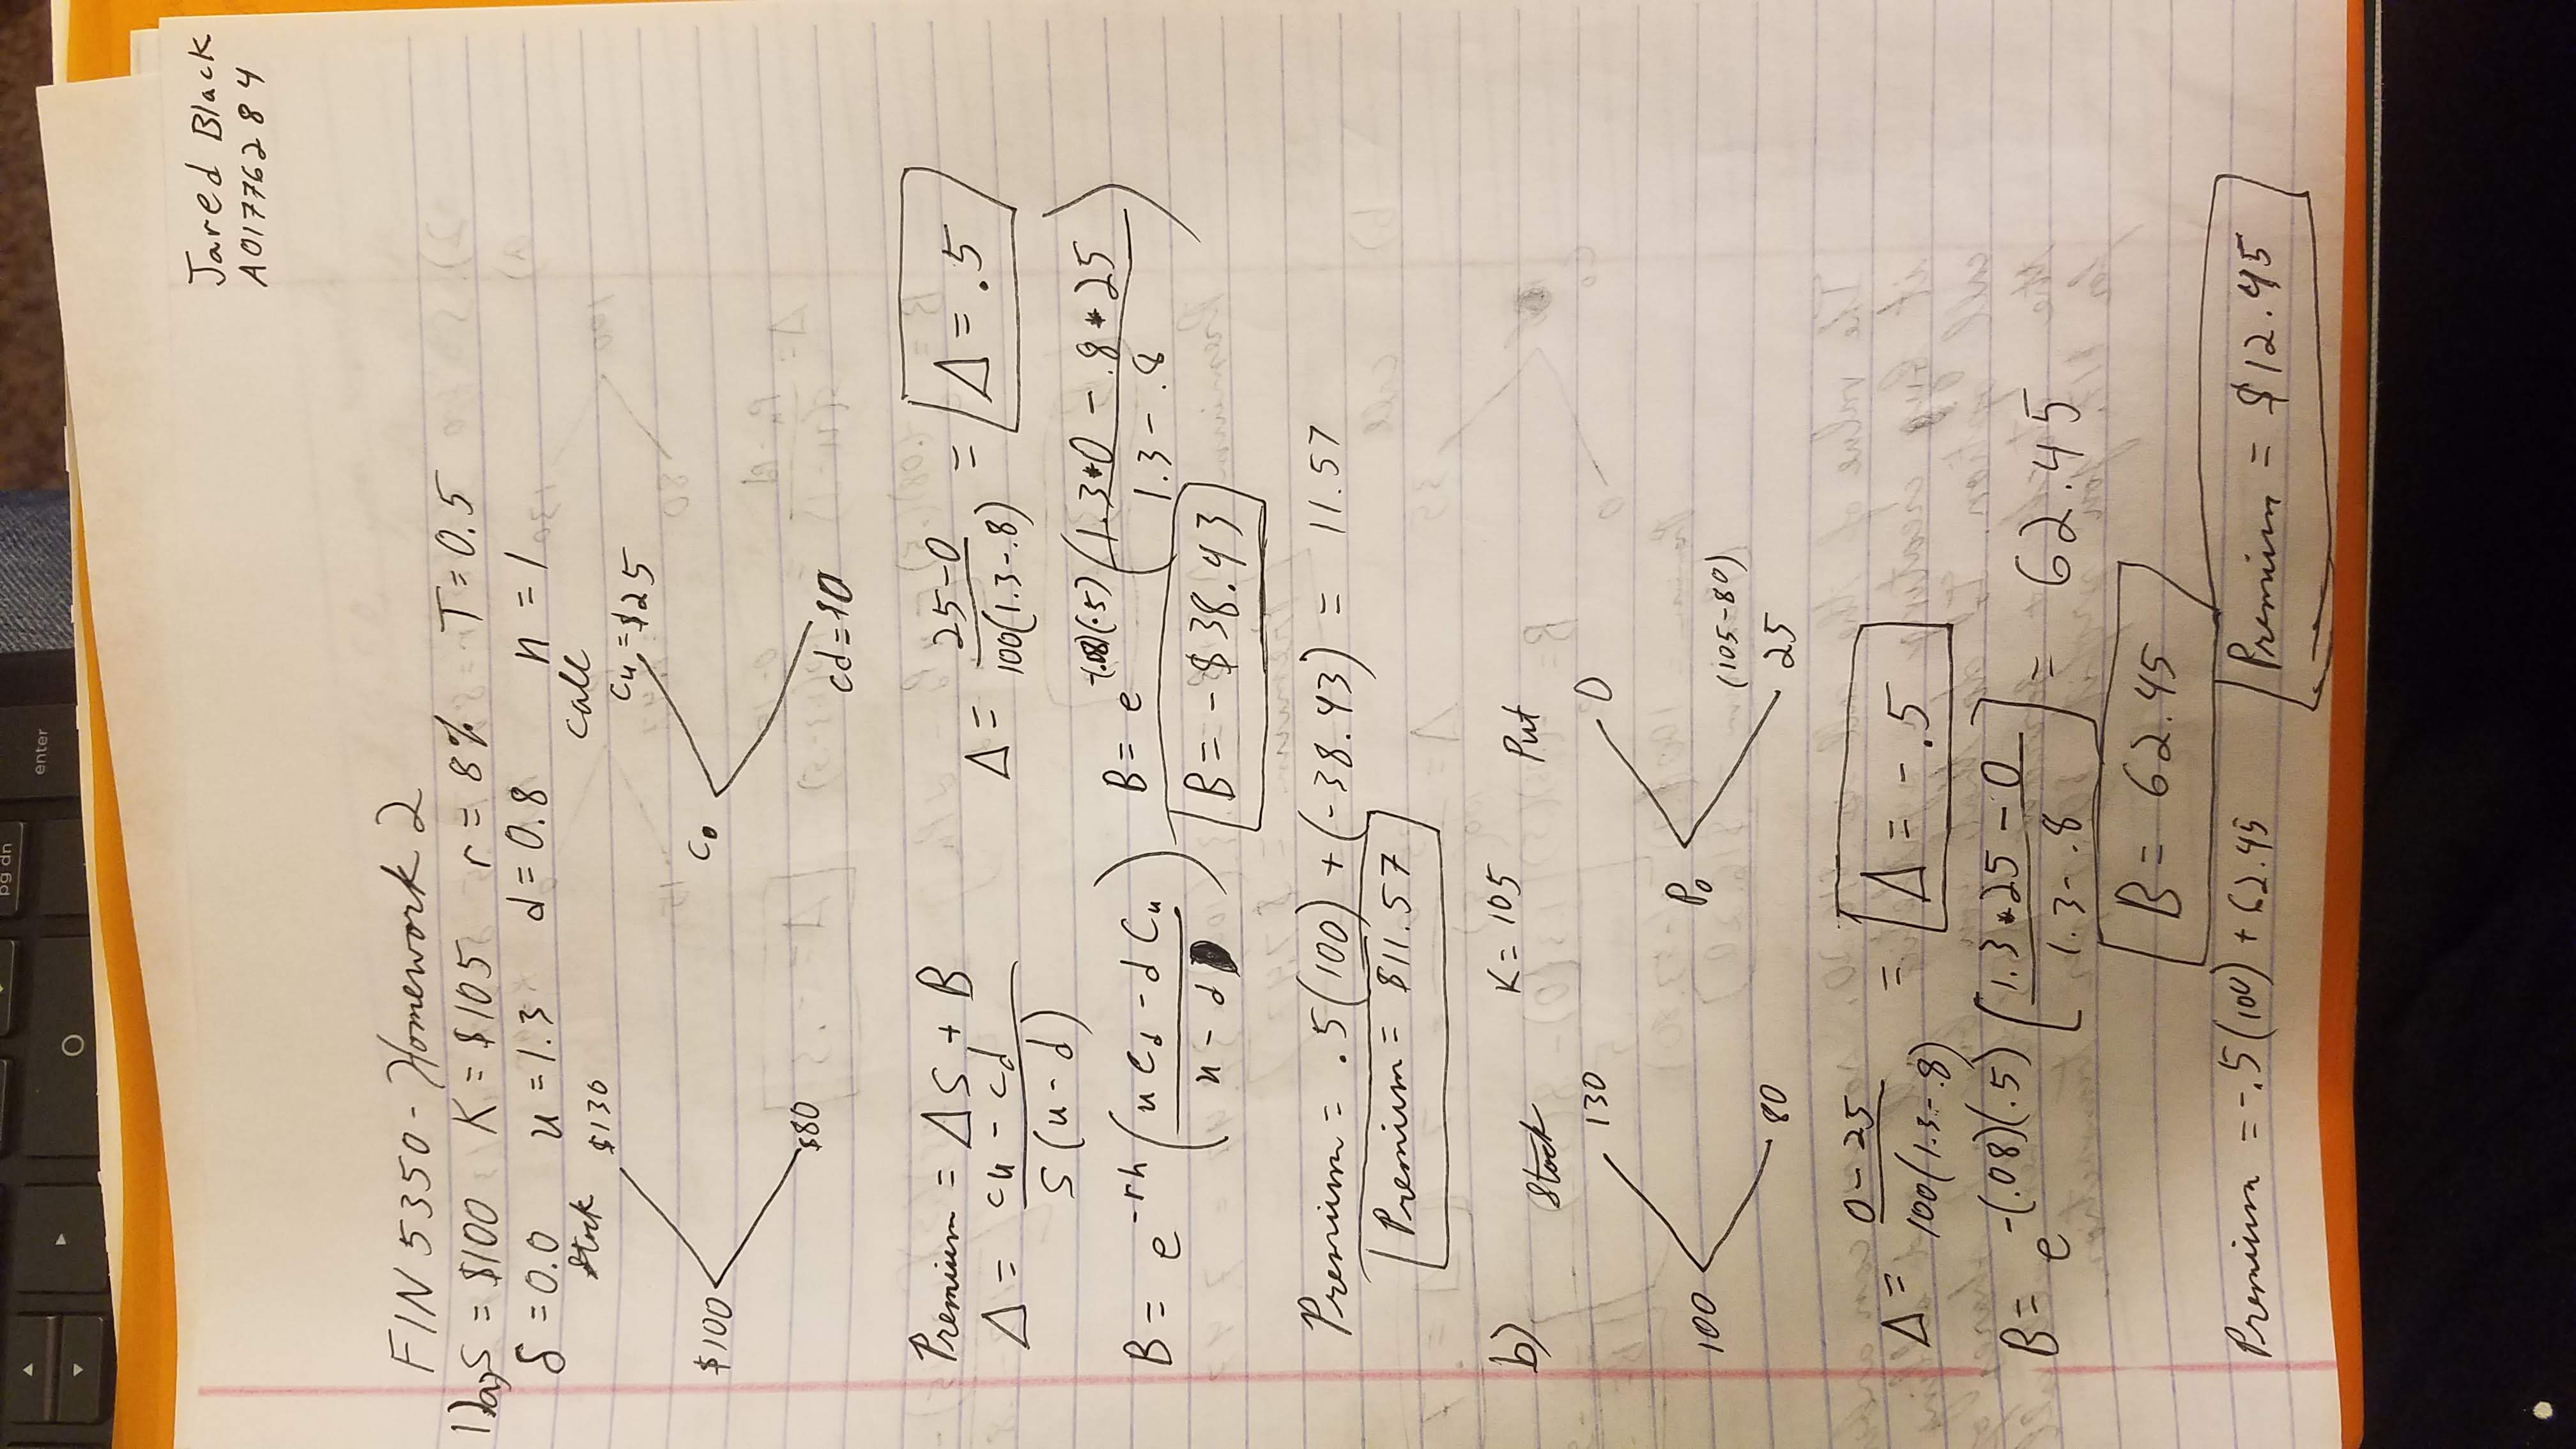 pg dn
enter
Jared Black
A01776284
FIN 5350 - Homework 2
1) a) S = $100 K = $105 r = 8% T = 0.5
δ = 0.0 u = 1.3 d = 0.8 n = 1
Stock Call
$130 Cu = $25
$100 C₀
$80 Cd = $0
Premium = ΔS + B Δ = (25-0)/(100(1.3-.8)) = Δ = .5
Δ = (Cu - Cd)/(S(u-d))
B = e^(-rh) ((u Cd - d Cu)/(u - d)) B = e^(-(.08)(.5)) ((1.3*0 - .8*25)/(1.3 - .8))
B = -$38.43
Premium = .5(100) + (-38.43) = 11.57
Premium = $11.57
b) Stock K = 105 Put
130 0
100 P₀
(105-80)
80 25
Δ = (0-25)/(100(1.3-.8)) = Δ = -.5
B = e^(-(.08)(.5)) [(1.3*25 - 0)/(1.3-.8)] = 62.45
B = 62.45
Premium = -.5(100) + 62.45 Premium = $12.45